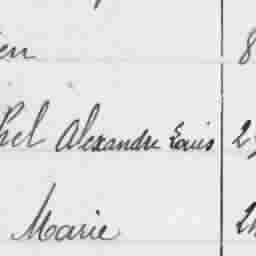 en 8
hel Alexandre Louis 2
Marie 2